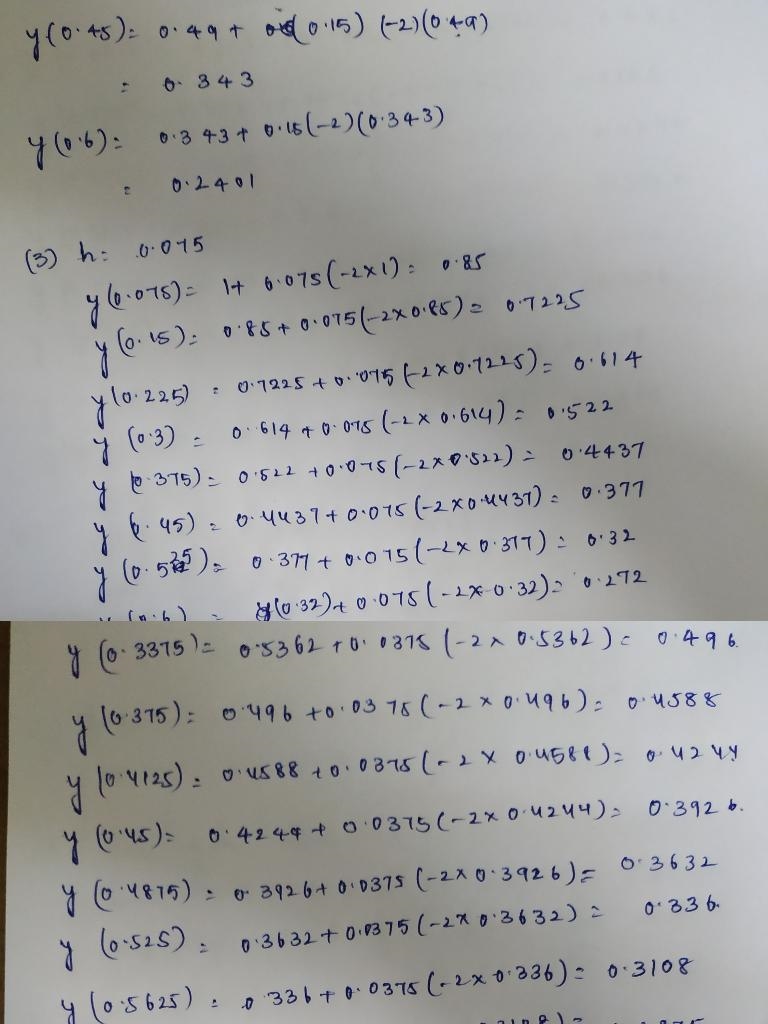 y(0.45)= 0.49 + (0.15) (-2)(0.49)
= 0.343
y(0.6)= 0.343+ 0.15(-2)(0.343)
= 0.2401
(3) h= 0.075
y(0.075)= 1+ 0.075(-2×1)= 0.85
y(0.15)= 0.85+ 0.075(-2×0.85)= 0.7225
y(0.225) = 0.7225+0.075(-2×0.7225)= 0.614
y(0.3) = 0.614+0.075(-2×0.614)= 0.522
y(0.375)= 0.522+0.075(-2×0.522)= 0.4437
y(0.45) = 0.4437+0.075(-2×0.4437)= 0.377
y(0.525)= 0.377+ 0.075(-2×0.377)= 0.32
y(0.6) = (0.32)+ 0.075(-2×0.32)= 0.272
y(0.3375)= 0.5362+0.0375(-2×0.5362)= 0.496
y(0.375)= 0.496+0.0375(-2×0.496)= 0.4588
y(0.4125)= 0.4588+0.0375(-2×0.4588)= 0.4244
y(0.45)= 0.4244+ 0.0375(-2×0.4244)= 0.3926.
y(0.4875)= 0.3926+0.0375(-2×0.3926)= 0.3632
y(0.525)= 0.3632+0.0375(-2×0.3632)= 0.336.
y(0.5625)= 0.336+0.0375(-2×0.336)= 0.3108